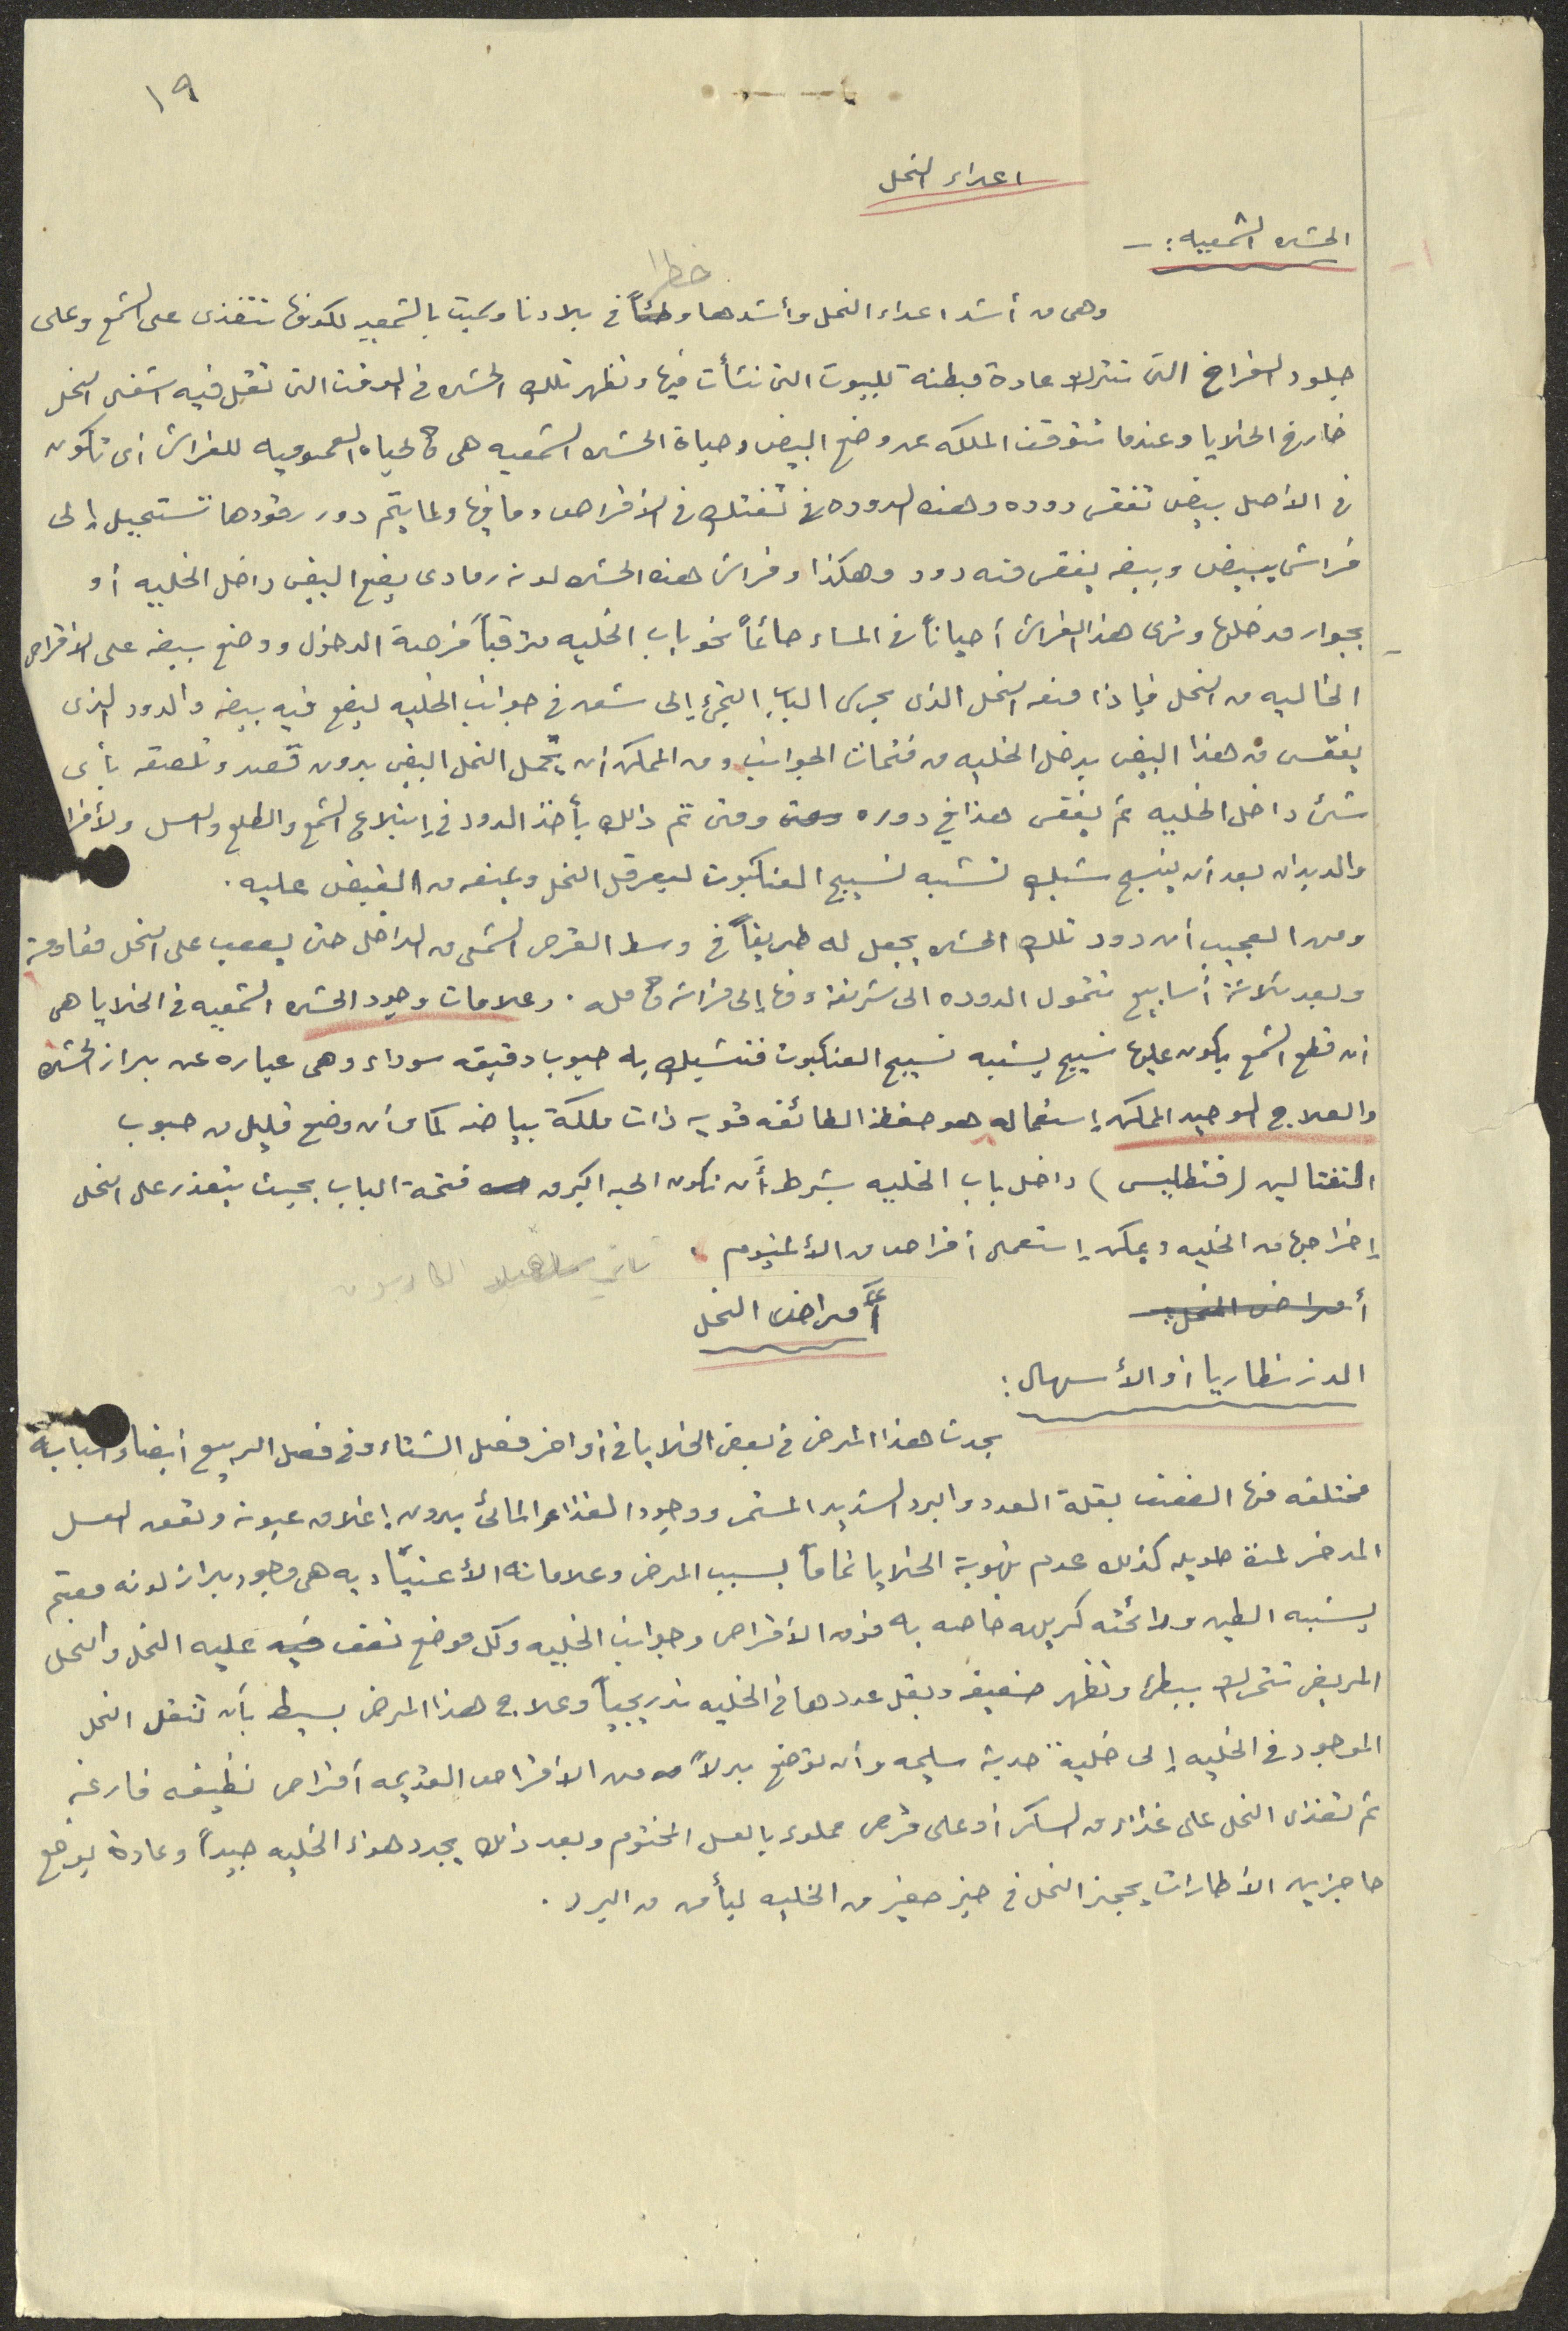 ١٩
اعداء النحل
١-
الحشره الشمعيه :-
خطرا
وهى من أشد اعداء النحل وأشدها وطئاً فى بلادنا وسميت بالشمعيه لكونها تتغذى على الشمع وعلى
جلود الفراخ التى تترك عادة مبطنة للبيوت التى نشأت فيها وتظهر تلك الحشره فى الوقت التى تقل فيه اشغال النحل
خارج الخلايا وعندما تتوقف الملكه عن وضع البيض وحياة الحشره الشمعيه هى كالحياه العموميه للفراش اى تكون
فى الأصل بيض تفقس دوده وهذه الدوده تفتك فى الأقراص وما فيها ولما يتم دور رقودها تستحيل إلى
فراش يبيض وبيضه يفقس منه دود وهكذا وفراش هذه الحشره لونه رمادى يضع البيض داخل الخليه أو
بجوار مدخلها وترى هذا الفراش أحياناً فى المساء حائماً نحو باب الخليه مترقباً فرصة الدخول ووضع بيضه على الاقراص
الخاليه من النحل فإذا منعه النحل الذى يحرس الباب التجئ إلى شق فى جوانب الخليه ليضع فيه بيضه والدود الذى
يفقس من هذا البيض يدخل الخليه من فتحات الجوانب ومن الممكن ان يحمل النحل البيض بدون قصد وتلصقه بأى
شئ داخل الخليه ثم يفقس هذا فى دوره ومتى تم ذالك يأخذ الدود فى إبتلاع الشمع والطلع والعسل والأفرا
والديدان بعد أن ينسج شبك تشبه نسيج العنكبوت ليعرقل النحل ويمنعه من القبض عليه .
ومن العجيب أن دود تلك الحشره يجعل له طريقاً فى وسط القرص الشمعى من الداخل حتى يصعب على النحل مقاومة
وبعد ثلاثة أسابيع تتحول الدوده الى شرنقة ومنها إلى فراشه كامله . وعلامات وجود الحشره الشمعيه فى الخلايا هى
ان قطع الشمع يكون عليها نسيج يشبه نسيج العنكبوت فتشبك به حبوب دقيقه سوداء وهى عباره عن براز الحشره
والعلاج الوحيد الممكن إستعماله هو حفظ الطائفه قويه ذات ملكة بياضه كما وأن وضع قليل من حبوب
النفتالين (فنطليس) داخل باب الخليه بشرط أن تكون الحبه اكبر من فتحة الباب بحيث يتعذر على النحل
إخراجها من الخليه ويمكن إستعمال أقراص من الألمنيوم .
أمراض النحل :
أمراض النحل
الدزنطاريا أو الأسهال :
يحدث هذا المرض فى بعض الخلايا فى أواخر فصل الشتاء وفى فصل الربيع أيضاً وأسبابه
مختلفه منها الضعف بقلة العدد والبرد الشديد المستمر ووجود الغذاء المائى بدون إغلاق عيونه وتعفن العسل
المدخر لمدة طويله كذلك عدم تهوية الخلايا تماماً يسبب المرض وعلاماته الأعتياديه هى وجود براز لونه معتم
يشبه الطين ورائحته كريهه خاصه به فوق الأقراص وجوانب الخليه وكل موضع تقف عليه النحل والنحل
المريض تتحرك ببطئ وتظهر ضعيفه ويقل عددها فى الخليه تدريجياً وعلاج هذا المرض بسيط بأن تنقل النحل
الموجود فى الخليه إلى خلية حديثه سليمه وأن توضع بدلاً من الاقراص القديمه أقراص نظيفه فارغه
ثم تغذى النحل على غذاء من السكر أو على قرص مملوء بالعسل المختوم وبعد ذلك يجدد هواء الخليه جيداً وعادة يوضع
حاجز بين الأطارات يحجز النحل فى حيز صغير من الخليه ليأمن من البرد .